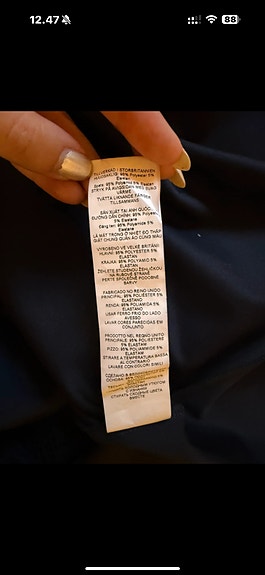 12.47
88
TILLVERKAD I STORBRITANNIEN
HUVUDSAKLIG: 95% Polyester 5%
Elastan
Spets: 95% Polyamid 5% Elastan
STRYK PÅ AVIGSIDAN MED
VÄRME
TVÄTTA LIKNANDE FÄRGER
TILLSAMMANS
SẢN XUẤT TẠI ANH QUỐC
95% Polyester
5% Elastane
95% Polyamide 5%
Elastane
LÀ MẶT TRONG Ở NHIỆT ĐỘ THẤP
GIẶT CHUNG QUẦN ÁO CÙNG MÀU
VYROBENO VE VELKÉ BRITÁNII
HLAVNÍ: 95% POLYESTER 5%
ELASTAN
KRAJKA: 95% POLYAMID 5%
ELASTAN
ŽEHLETE STUDENOU ŽEHLIČKOU
NA RUBOVÉ STRANĚ
PERTE SPOLEČNĚ PODOBNÉ
BARVY
FABRICADO NO REINO UNIDO
PRINCIPAL: 95% POLIÉSTER 5%
ELASTANO
RENDA: 95% POLIAMIDA 5%
ELASTANO
USAR FERRO FRIO DO LADO
AVESSO
LAVAR CORES PARECIDAS EM
CONJUNTO
PRODOTTO NEL REGNO UNITO
PRINCIPALE: 95% POLIESTERE
5% ELASTAM
PIZZO: 95% POLIAMMIDE 5%
ELASTAM
STIRARE A TEMPERATURA BASSA
AL CONTRARIO
LAVARE CON COLORI SIMILI
СДЕЛАНО В
ОСНОВА: 95%
УТЮГОМ
С ИЗНАНКИ
СТИРАТЬ СХОДНЫЕ ЦВЕТА
ВМЕСТЕ